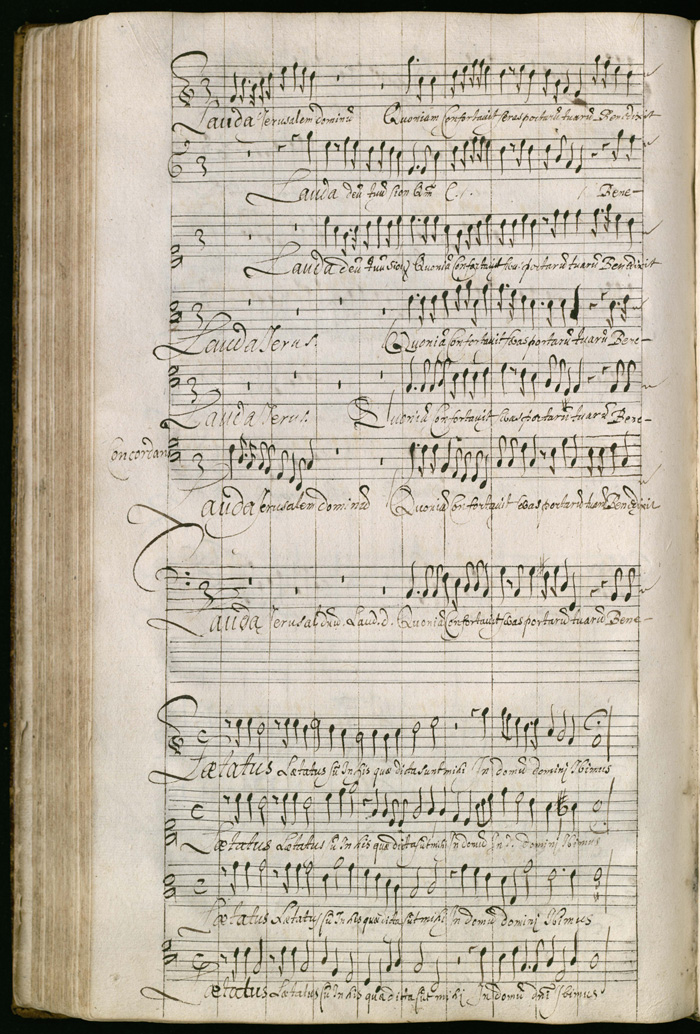 Lauda Jerusalem dominũ Quoniam Confortavit seras portarũ tuarũ Benedixit
Lauda deũ tuũ sion Bene-
Lauda deũ tuũ sion Quoniã Confortavit portarũ tuarũ Benedixit
Lauda Jerus. Quoniã Confortavit portarũ tuarũ Bene-
Lauda Jerus. Quoniã Confortavit portarũ tuarũ Bene-
Lauda Jerusalem Quoniã Confortavit portarũ tuarũ Benedixit
Lauda Quoniã Confortavit portarũ tuarũ Bene-
Lætatus Lætatus sũ In his quæ dicta sunt mihi In domũ dominj Ibimus
Lætatus Lætatus sũ In his quæ dicta sũt mihi In domũ dominj Ibimus
Lætatus Lætatus sũ In his quæ dicta sũt mihj In domũ dominj Ibimus
Lætatus Lætatus sũ In his quæ dicta sũt mihj In domũ Ibimus